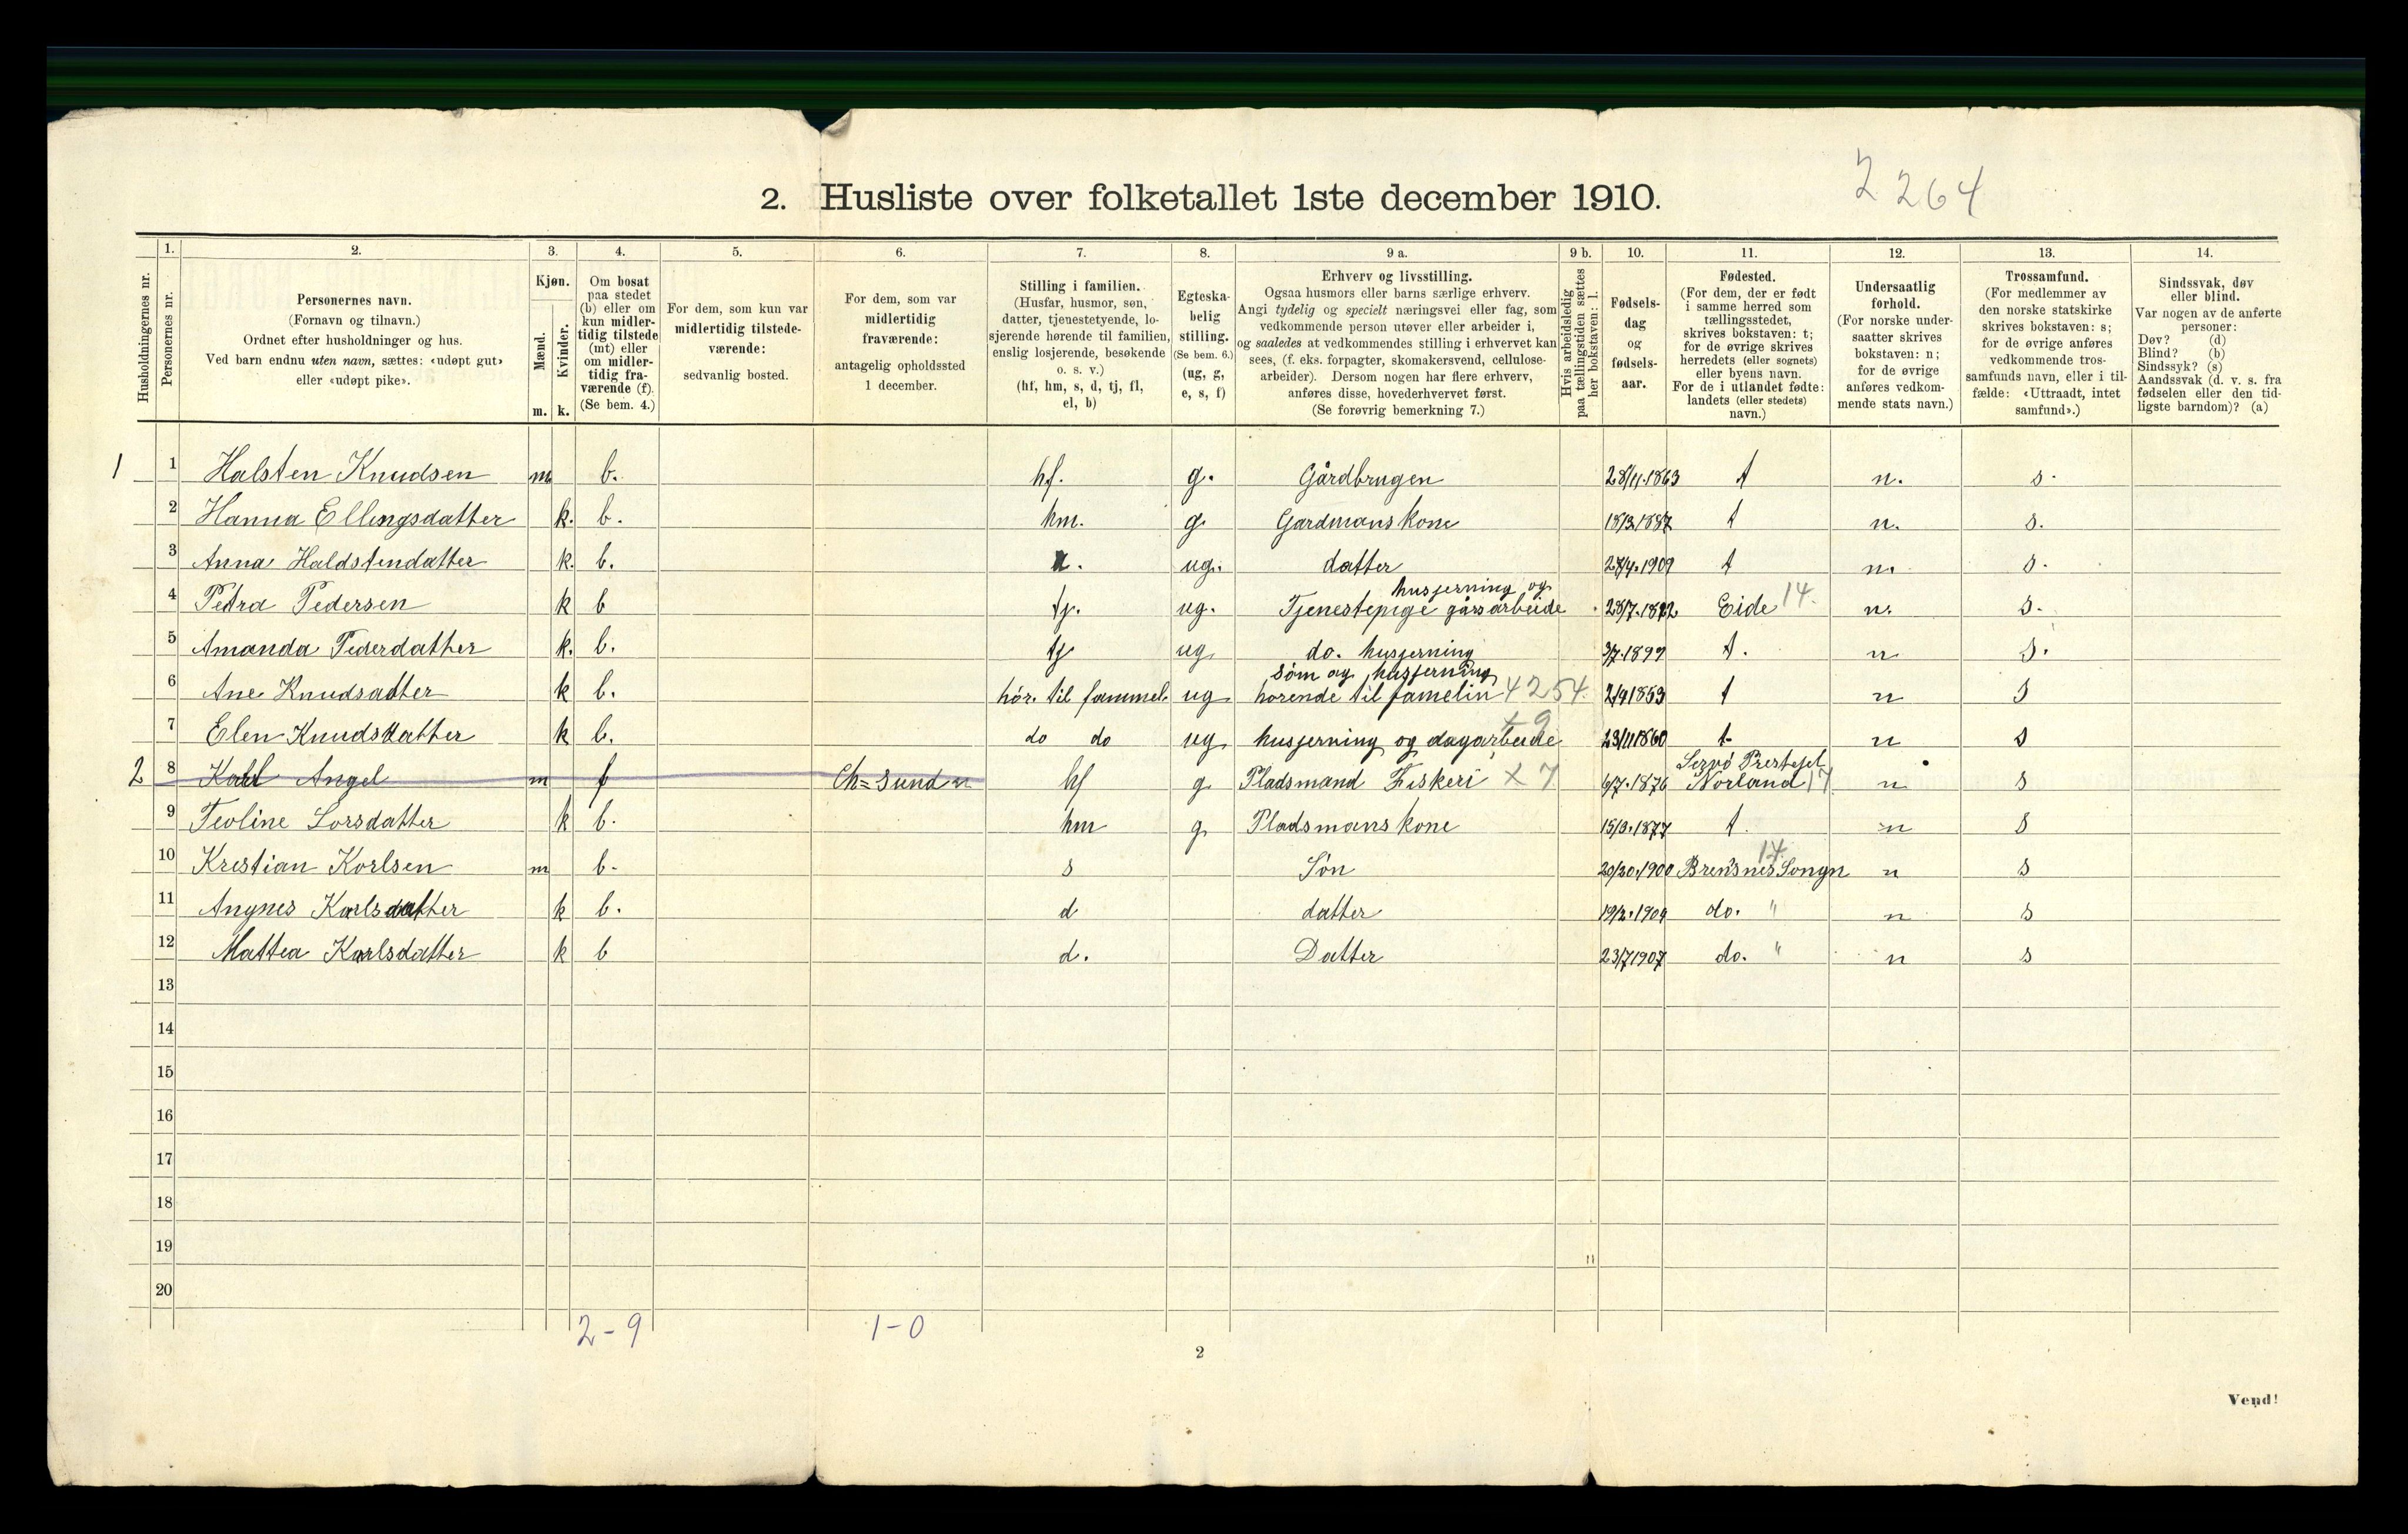 2 264
2. Husliste over folketallet 1ste december 1910.
1. 2. 3. 4. 5. 6. 7. 8. 9 a. 9 b. 10. 11. 12. 13. 14.
Husholdningernes nr.
Personernes nr.
Personernes navn.
(Fornavn og tilnavn.)
Ordnet efter husholdninger og hus.
Ved barn endnu uten navn, sættes: «udøpt gut»
eller «udøpt pike».
Kjøn.
Mænd.
Kvinder.
m. k.
Om bosat
paa stedet
(b) eller om
kun midler-
tidig tilstede
(mt) eller
om midler-
tidig fra-
værende (f).
(Se bem. 4.)
For dem, som kun var
midlertidig tilstede-
værende:
sedvanlig bosted.
For dem, som var
midlertidig
fraværende:
antagelig opholdssted
1 december.
Stilling i familien.
(Husfar, husmor, søn,
datter, tjenestetyende, lo-
sjerende hørende til familien,
enslig losjerende, besøkende
o. s. v.)
(hf, hm, s, d, tj, fl,
el, b)
Egteska-
belig
stilling.
(Se bem. 6.)
(ug, g,
e, s, f)
Erhverv og livsstilling.
Ogsaa husmors eller barns særlige erhverv.
Angi tydelig og specielt næringsvei eller fag, som
vedkommende person utøver eller arbeider i,
og saaledes at vedkommendes stilling i erhvervet kan
sees, (f. eks. forpagter, skomakersvend, cellulose-
arbeider). Dersom nogen har flere erhverv,
anføres disse, hovederhvervet først.
(Se forøvrig bemerkning 7.)
Hvis arbeidsledig
paa tællingstiden sættes
her bokstaven: l.
Fødsels-
dag
og
fødsels-
aar.
Fødested.
(For dem, der er født
i samme herred som
tællingsstedet,
skrives bokstaven: t;
for de øvrige skrives
herredets (eller sognets)
eller byens navn.
For de i utlandet fødte:
landets (eller stedets)
navn.)
Undersaatlig
forhold.
(For norske under-
saatter skrives
bokstaven: n;
for de øvrige
anføres vedkom-
mende stats navn.)
Trossamfund.
(For medlemmer av
den norske statskirke
skrives bokstaven: s;
for de øvrige anføres
vedkommende tros-
samfunds navn, eller i til-
fælde: «Uttraadt, intet
samfund».)
Sindssvak, døv
eller blind.
Var nogen av de anførte
personer:
Døv? (d)
Blind? (b)
Sindssyk? (s)
Aandssvak (d. v. s. fra
fødselen eller den tid-
ligste barndom)? (a)
1 1 Halsten Knudsen m b. hf. g. Gårdbrugen 28/11.1863 t n. s.
2 Hanna Ellingsdatter k. b. hm. g. Gardmanskone 18/3.1887 t n. s.
3 Anna Haldstendatter k. b. ug. datter 1909 t n. s.
husjerning og
4 Petra Pedersen k b tj. ug. Tjenestepige Eide 14. n. s.
5 Amanda Pederdatter k. b. tj ug do. husjerning t. n s.
Søm og husjerning
6 Ane Knudsdatter k b. hør. til fammel. ug horende til famelin 4254. t n s
+ 9
7 Elen Knudsdatter k b. do do ug husjerning og dagarbeide 23/11 1860 t- n s
Prestejel
2 8 Karl Angel m f Ch=sund n hf g Pladsmand Fiskeri X 7 6/7.1876 Norland 17 n s
9 Teoline Lorsdatter k b. hm g Pladsmanskone 15/3.1877 t. n s
17
10 Krestian Korlsen m b. s Søn 1900 Brensnes Songn n s
11 Angnes Karlsdatter k b. d datter do. " n s
12 Mattea Karlsdatter k b d. Datter 23/7 1907 do. " n s
13
14
15
16
17
18
19
20
2-9 1-0
2
Vend!